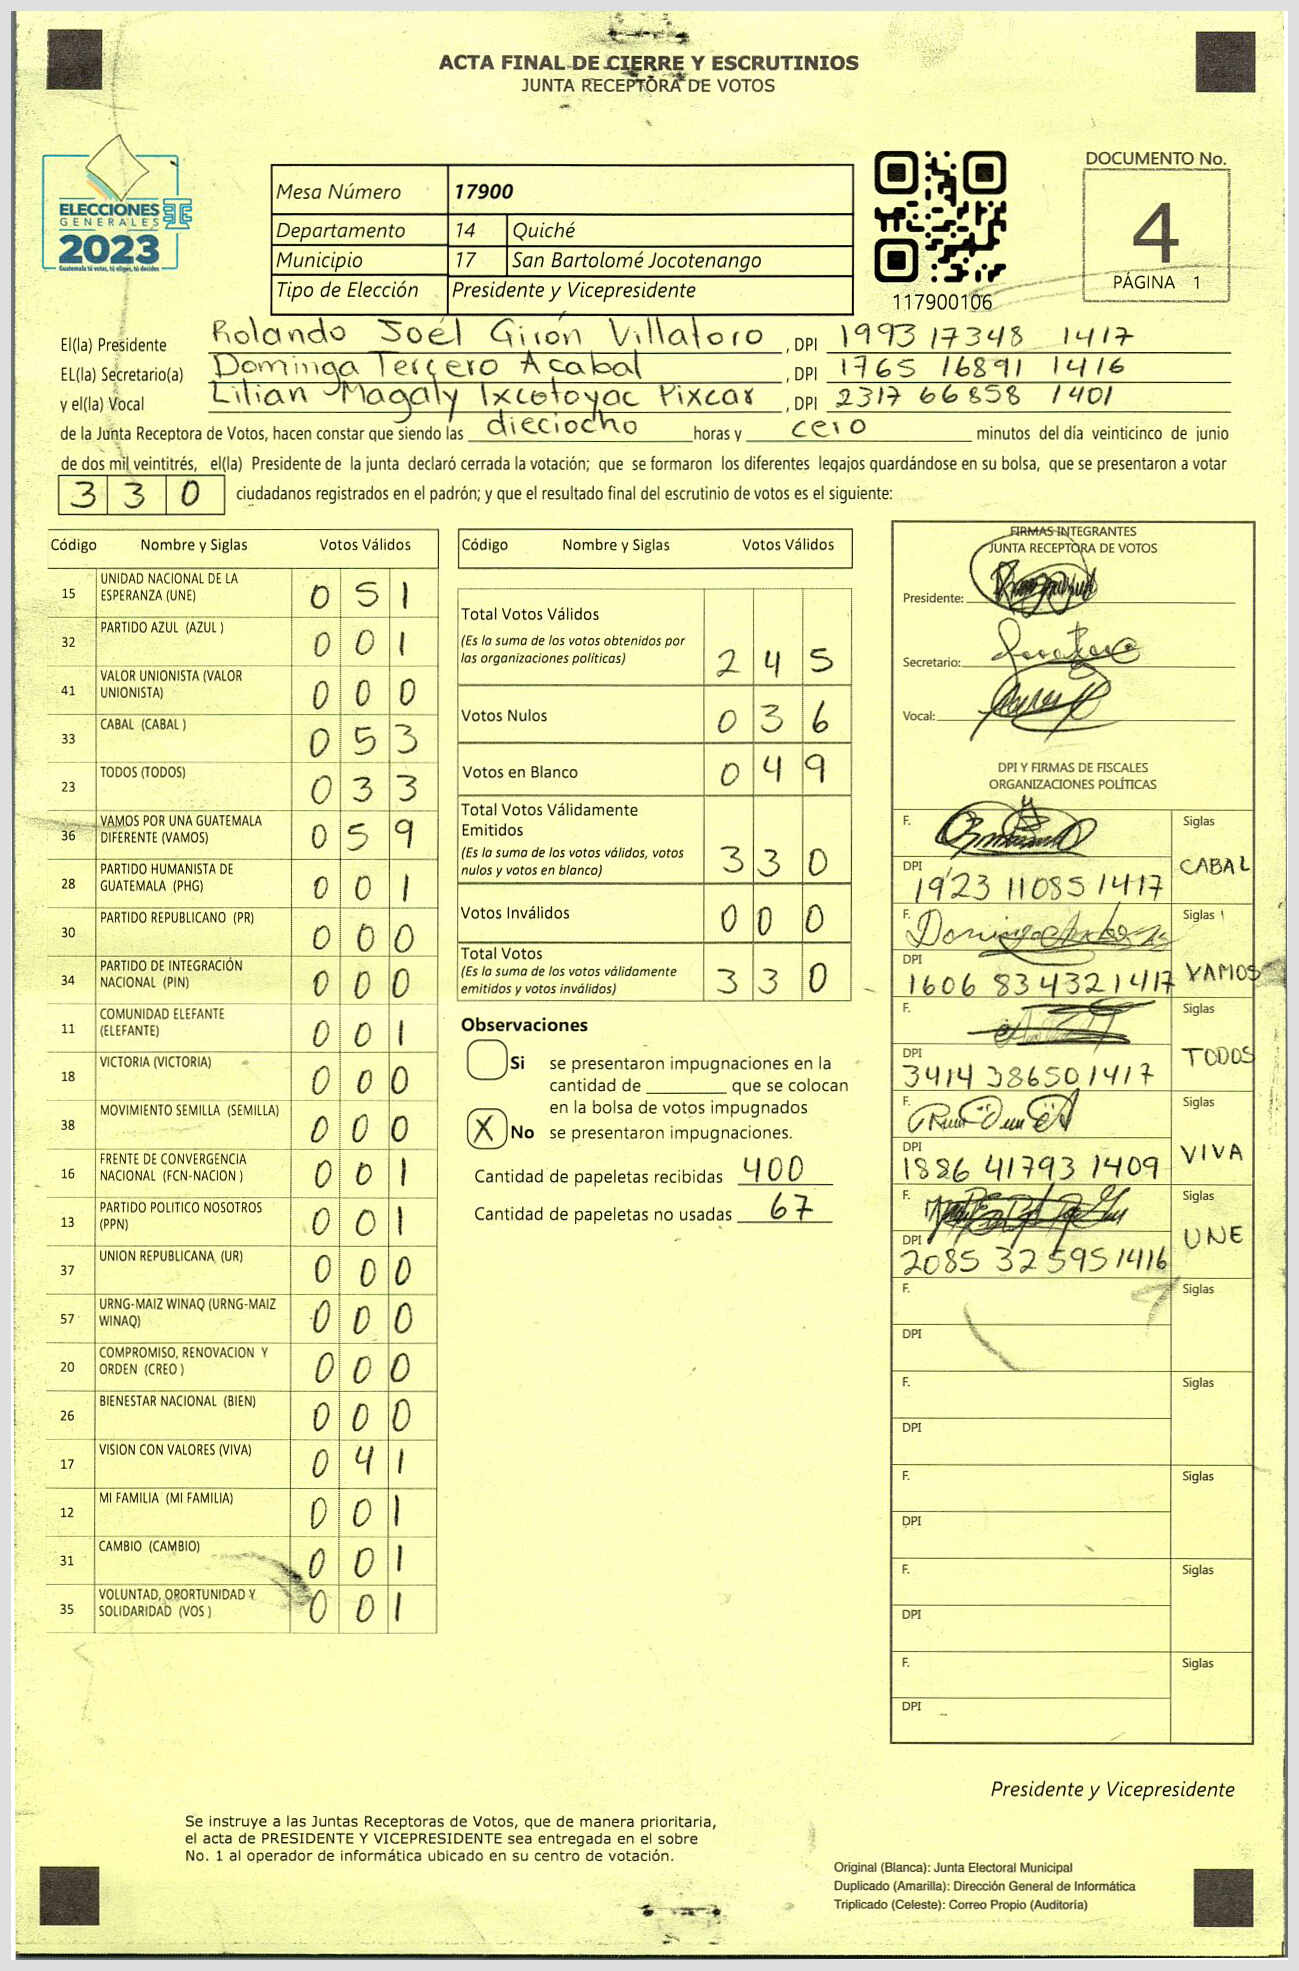 ACTA FINAL DE CIERRE Y ESCRUTINIOS
JUNTA RECEPTORA DE VOTOS
ELECCIONES
GENERALES
2023
Guatemala tú votas, tú eliges, tú decides
Mesa Número 17900
Departamento 14 Quiché
Municipio 17 San Bartolomé Jocotenango
Tipo de Elección Presidente y Vicepresidente
117900106
DOCUMENTO No.
4
PÁGINA 1
El(la) Presidente Rolando Joél Girón Villatoro , DPI 1993 17348 1417
EL(la) Secretario(a) Dominga Tercero Acabal , DPI 1765 16891 1416
y el(la) Vocal Lilian Magaly Ixcotoyac Pixcar , DPI 2317 66858 1401
de la Junta Receptora de Votos, hacen constar que siendo las dieciocho horas y cero minutos del día veinticinco de junio
de dos mil veintitrés, el(la) Presidente de la junta declaró cerrada la votación; que se formaron los diferentes legajos guardándose en su bolsa, que se presentaron a votar
330 ciudadanos registrados en el padrón; y que el resultado final del escrutinio de votos es el siguiente:
Código Nombre y Siglas Votos Válidos
15 UNIDAD NACIONAL DE LA ESPERANZA (UNE) 051
32 PARTIDO AZUL (AZUL ) 001
41 VALOR UNIONISTA (VALOR UNIONISTA) 000
33 CABAL (CABAL ) 053
23 TODOS (TODOS) 033
36 VAMOS POR UNA GUATEMALA DIFERENTE (VAMOS) 059
28 PARTIDO HUMANISTA DE GUATEMALA (PHG) 001
30 PARTIDO REPUBLICANO (PR) 000
34 PARTIDO DE INTEGRACIÓN NACIONAL (PIN) 000
11 COMUNIDAD ELEFANTE (ELEFANTE) 001
18 VICTORIA (VICTORIA) 000
38 MOVIMIENTO SEMILLA (SEMILLA) 000
16 FRENTE DE CONVERGENCIA NACIONAL (FCN-NACION ) 001
13 PARTIDO POLITICO NOSOTROS (PPN) 001
37 UNION REPUBLICANA (UR) 000
57 URNG-MAIZ WINAQ (URNG-MAIZ WINAQ) 000
20 COMPROMISO, RENOVACION Y ORDEN (CREO ) 000
26 BIENESTAR NACIONAL (BIEN) 000
17 VISION CON VALORES (VIVA) 041
12 MI FAMILIA (MI FAMILIA) 001
31 CAMBIO (CAMBIO) 001
35 VOLUNTAD, OPORTUNIDAD Y SOLIDARIDAD (VOS ) 001
Código Nombre y Siglas Votos Válidos
Total Votos Válidos 245
(Es la suma de los votos obtenidos por
las organizaciones políticas)
Votos Nulos 036
Votos en Blanco 049
Total Votos Válidamente
Emitidos 330
(Es la suma de los votos válidos, votos
nulos y votos en blanco)
Votos Inválidos 000
Total Votos 330
(Es la suma de los votos válidamente
emitidos y votos inválidos)
Observaciones
Si se presentaron impugnaciones en la
cantidad de ________ que se colocan
en la bolsa de votos impugnados
X No se presentaron impugnaciones.
Cantidad de papeletas recibidas 400
Cantidad de papeletas no usadas 67
FIRMAS INTEGRANTES
JUNTA RECEPTORA DE VOTOS
Presidente:
Secretario:
Vocal:
DPI Y FIRMAS DE FISCALES
ORGANIZACIONES POLÍTICAS
F. Siglas
DPI 1923 11085 1417 CABAL
F. Siglas
DPI 1606 83432 1417 VAMOS
F. Siglas
DPI 3414 38650 1417 TODOS
F. Siglas
DPI 1886 41793 1409 VIVA
F. Siglas
DPI 2085 32595 1416 UNE
F. Siglas
DPI
F. Siglas
DPI
F. Siglas
DPI
F. Siglas
DPI
F. Siglas
DPI
Presidente y Vicepresidente
Se instruye a las Juntas Receptoras de Votos, que de manera prioritaria,
el acta de PRESIDENTE Y VICEPRESIDENTE sea entregada en el sobre
No. 1 al operador de informática ubicado en su centro de votación.
Original (Blanca): Junta Electoral Municipal
Duplicado (Amarilla): Dirección General de Informática
Triplicado (Celeste): Correo Propio (Auditoría)